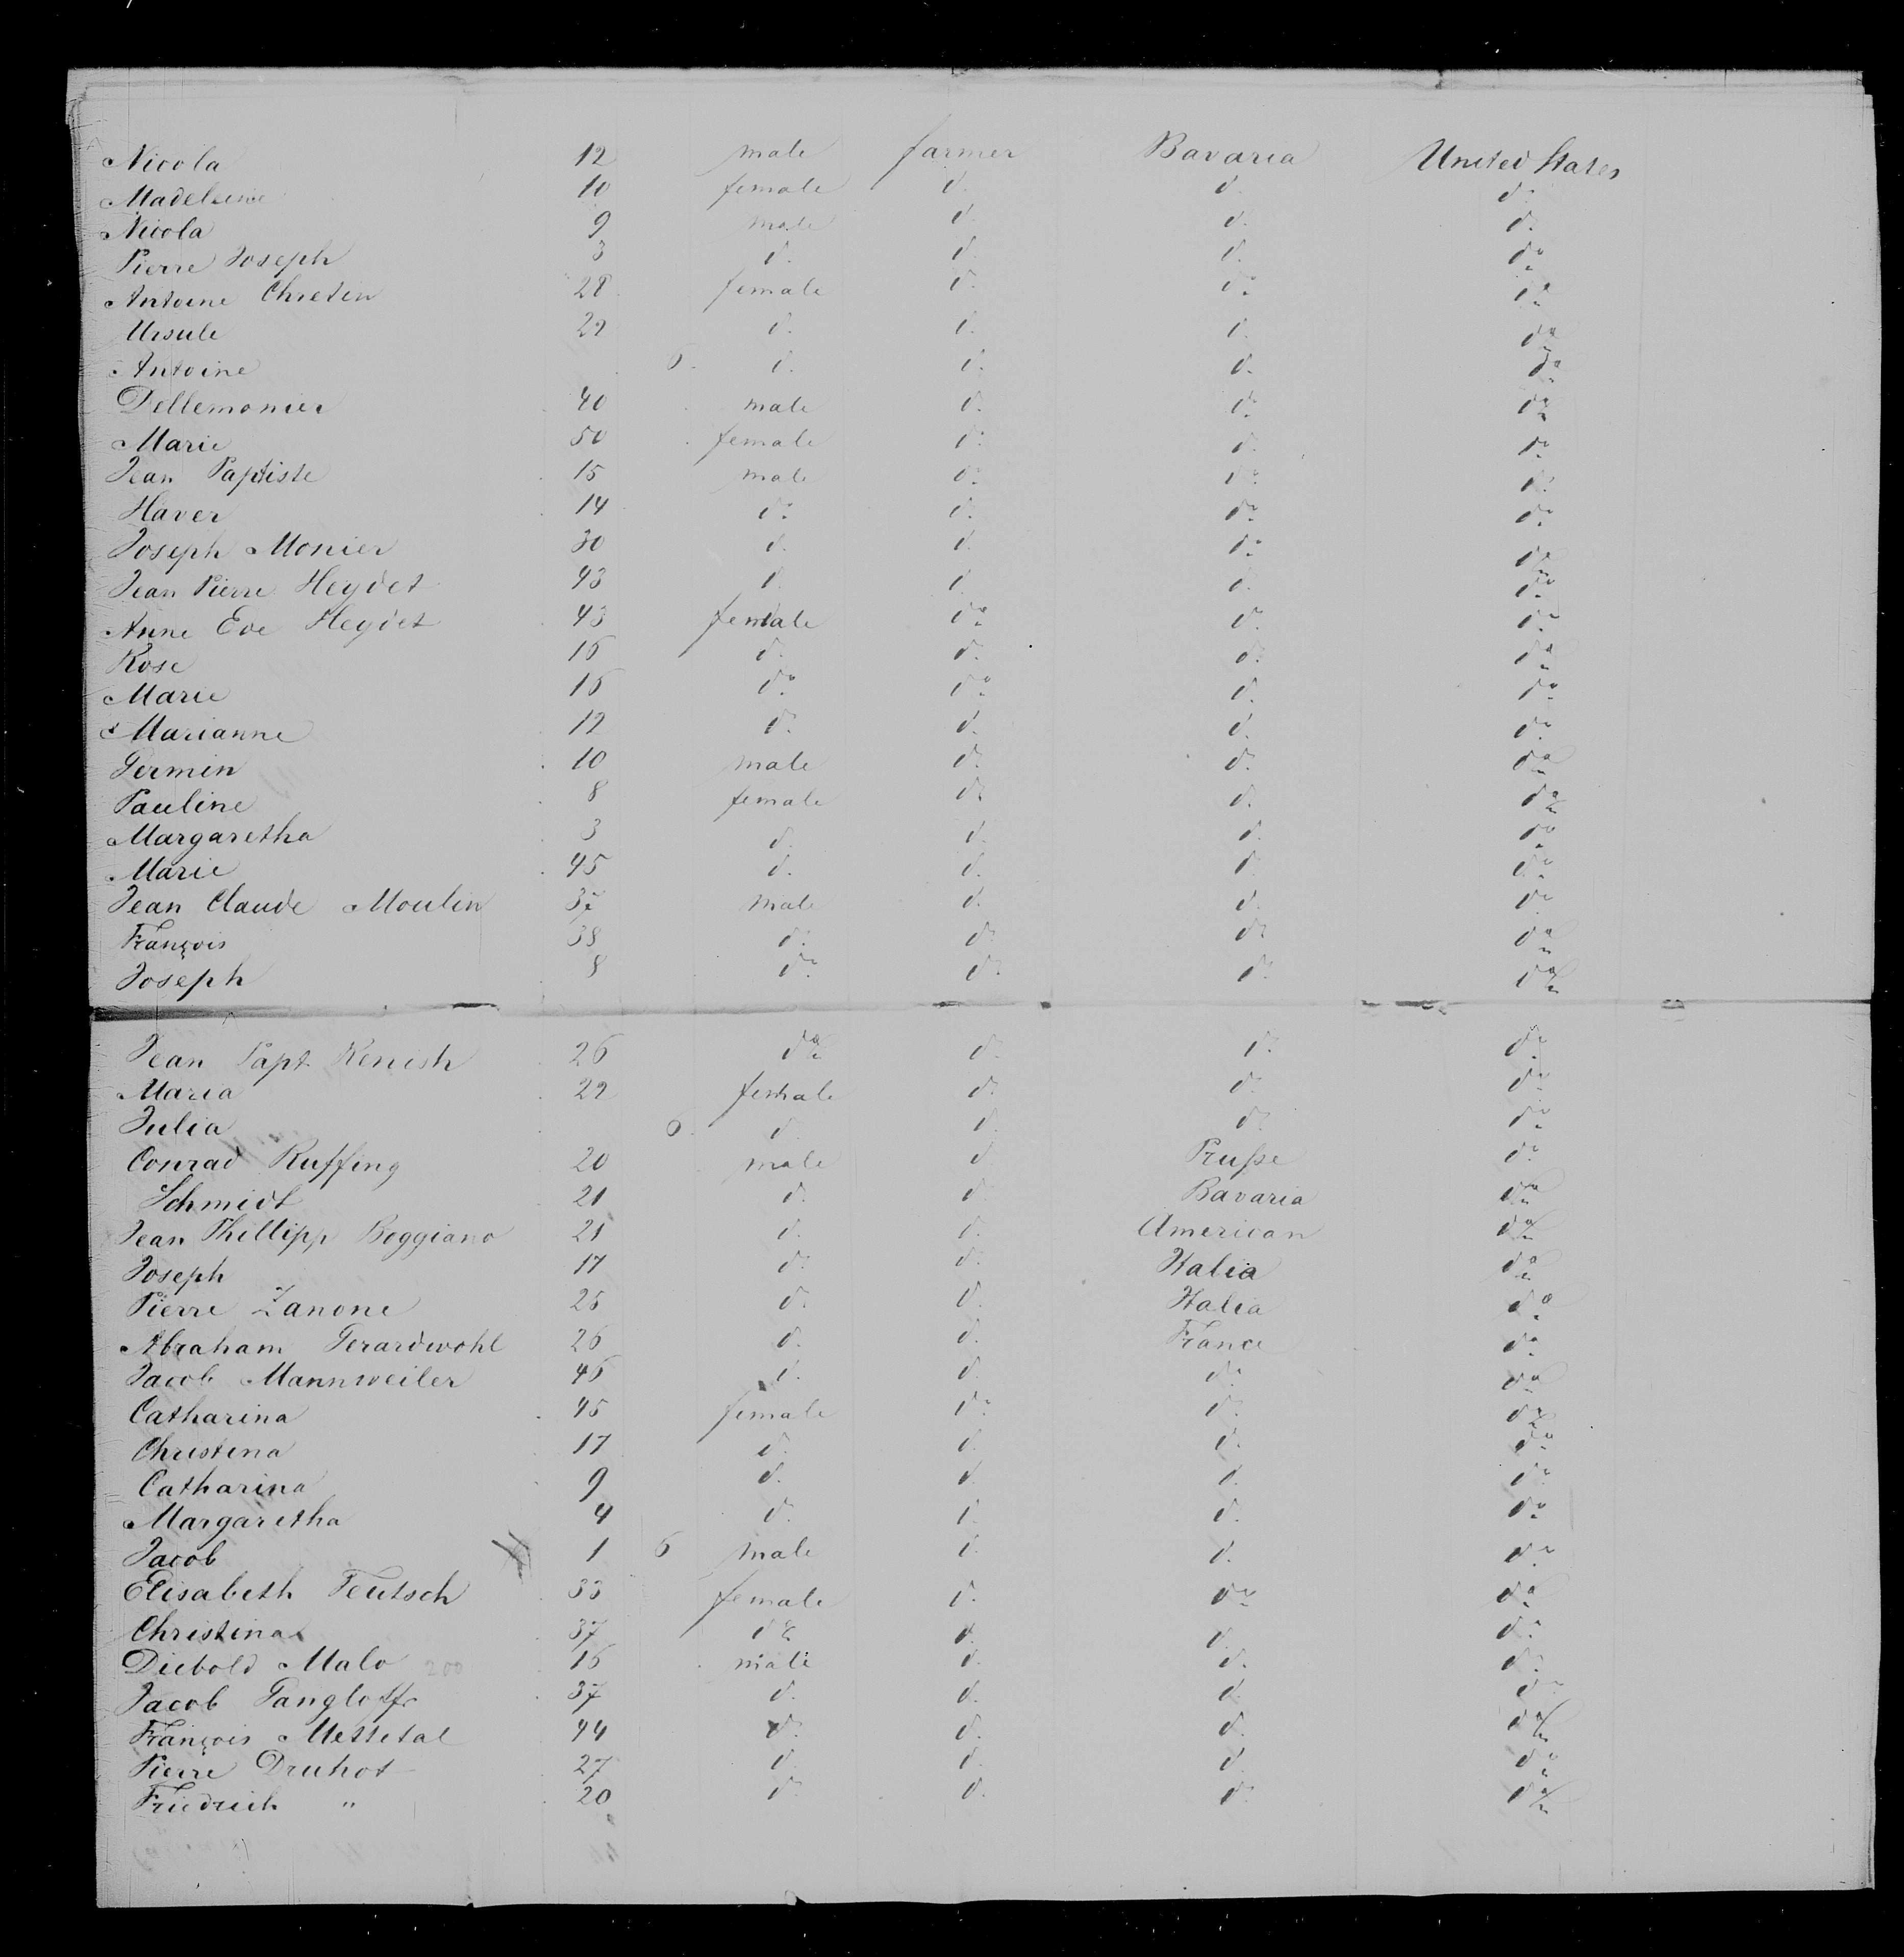 Nicola 12 male farmer Bavaria United States
Madeleine 10 female do. do. do.
Nicola 9 male do. do. do.
Pierre Joseph 3 do. do. do. do.
Antoine Chretien 28 female do. do. do.
Ursule 22 do. do. do. do.
Antoine 6. do. do. do. do.
Dellemonier 40 male do. do. do.
Marie 50 female do. do. do.
Jean Paptiste 15 male do. do. do.
Haver 14 do. do. do. do.
Joseph Monier 30 do. do. do. do.
Jean Pierre Heydet 43 do. do. do. do.
Anne Eve Heydet 43 female do. do. do.
Rose 16 do. do. do. do.
Marie 16 do. do. do. do.
Marianne 12 do. do. do. do.
Germin 10 male do. do. do.
Pauline 8 female do. do. do.
Margaretha 3 do. do. do. do.
Marie 45 do. do. do. do.
Jean Claude Moulin 37 male do. do. do.
François 38 do. do. do. do.
Joseph 8 do. do. do. do.
Jean Papt. Renish 26 do. do. do. do.
Maria 22 female do. do. do.
Julia 6. do. do. do. do.
Conrad Ruffing 20 male do Prusse do.
Schmidt 21 do. do. Bavaria do.
Jean Phillipp Boggiano 21 do. do. American do.
Joseph 17 do. do. Italia do.
Pierre Zanone 25 do. do. Italia do.
Abraham Gerardwohl 26 do. do. France do.
Jacob Mannweiler 46 do. do. do. do.
Catharina 45 female do. do. do.
Christina 17 do. do. do. do.
Catharina 9 do. do. do. do.
Margaretha 4 do. do. do. do.
Jacob 1 6 male do. do. do.
Elisabeth Teutsch 33 female do. do. do.
Christina 37 do. do. do. do.
Diebold Malo 200 16 male do. do. do.
Jacob Gangloff 37 do. do. do. do.
François Mettetal 44 do. do. do. do.
Pierre Druhot 27 do. do. do. do.
Friedrich " 20 do. do. do. do.